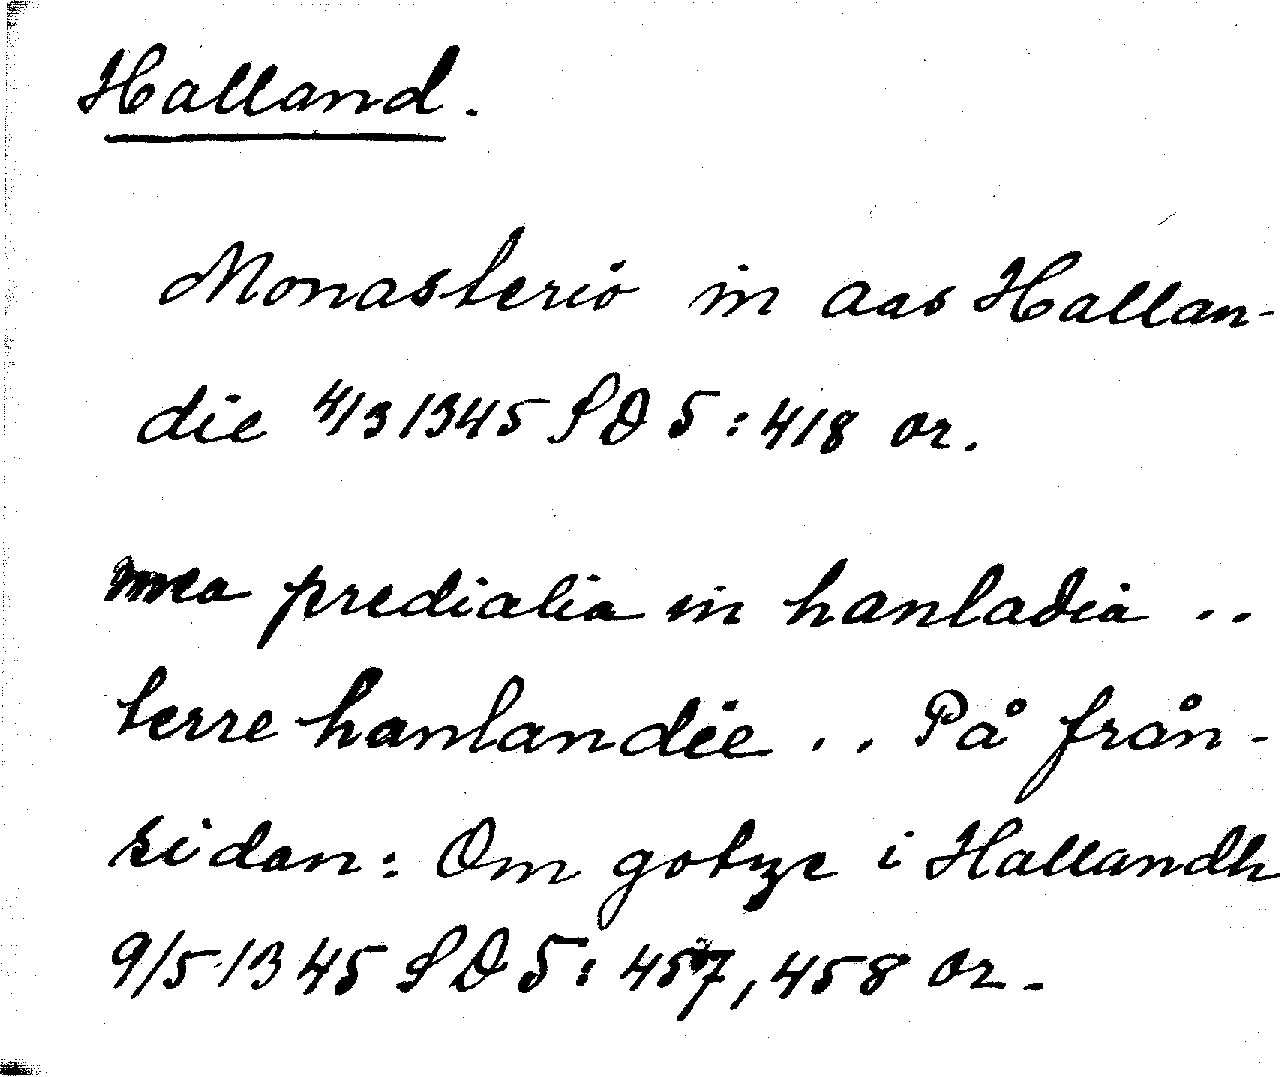 Halland.
Monasterio in aas Hallan-
die 4/3 1345 SD 5:418 or.
mea predialia in hanladia ..
terre hanlandie .. På från-
sidan: Om gotze i Hallandh
9/5 1345 SD 5:457, 458 or.